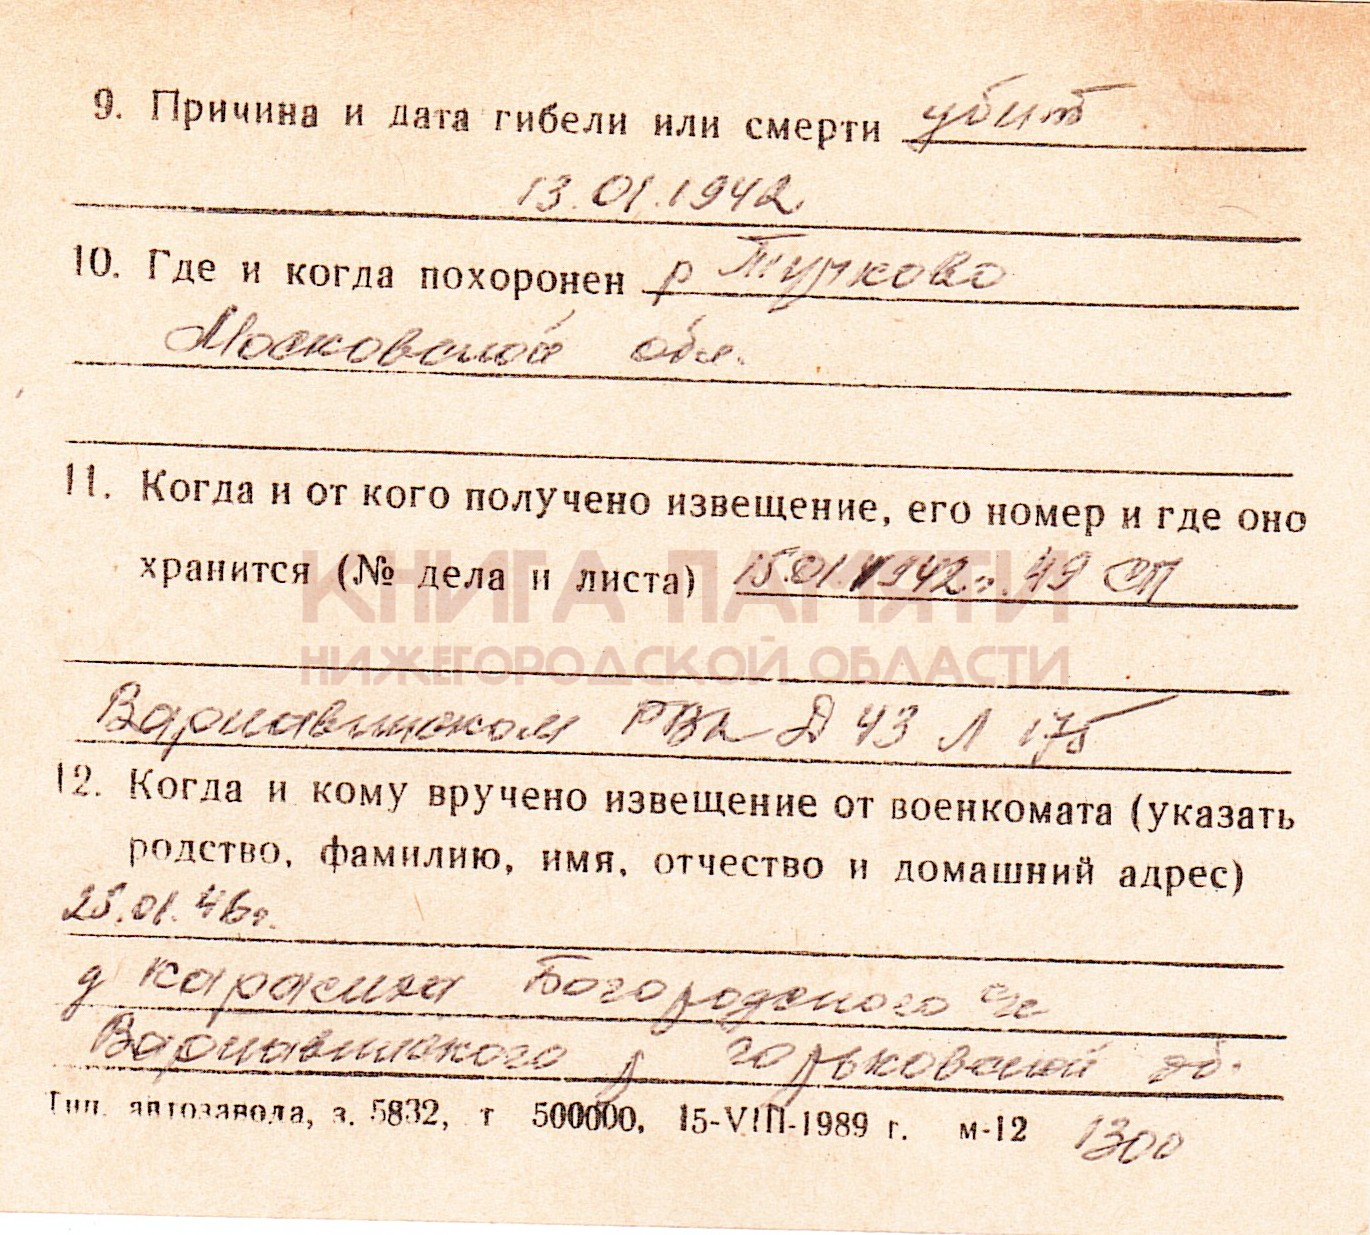 9. Причина и дата гибели или смерти убит
13.01.1942
10. Где и когда похоронен р Турково
Московской обл.
11. Когда и от кого получено извещение, его номер и где оно
хранится (№ дела и листа) 15.01.1942г. 49 СП
КНИГА ПАМЯТИ
НИЖЕГОРОДСКОЙ ОБЛАСТИ
Варнавинском РВК Д 43 Л 175
12. Когда и кому вручено извещение от военкомата (указать
родство, фамилию, имя, отчество и домашний адрес)
25.01.46г.
д Карасиха Богородского
Варнавинского р Горьковской об.
Тип. автозавода, з. 5832, т 500000, 15-VIII-1989 г. м-12 1300